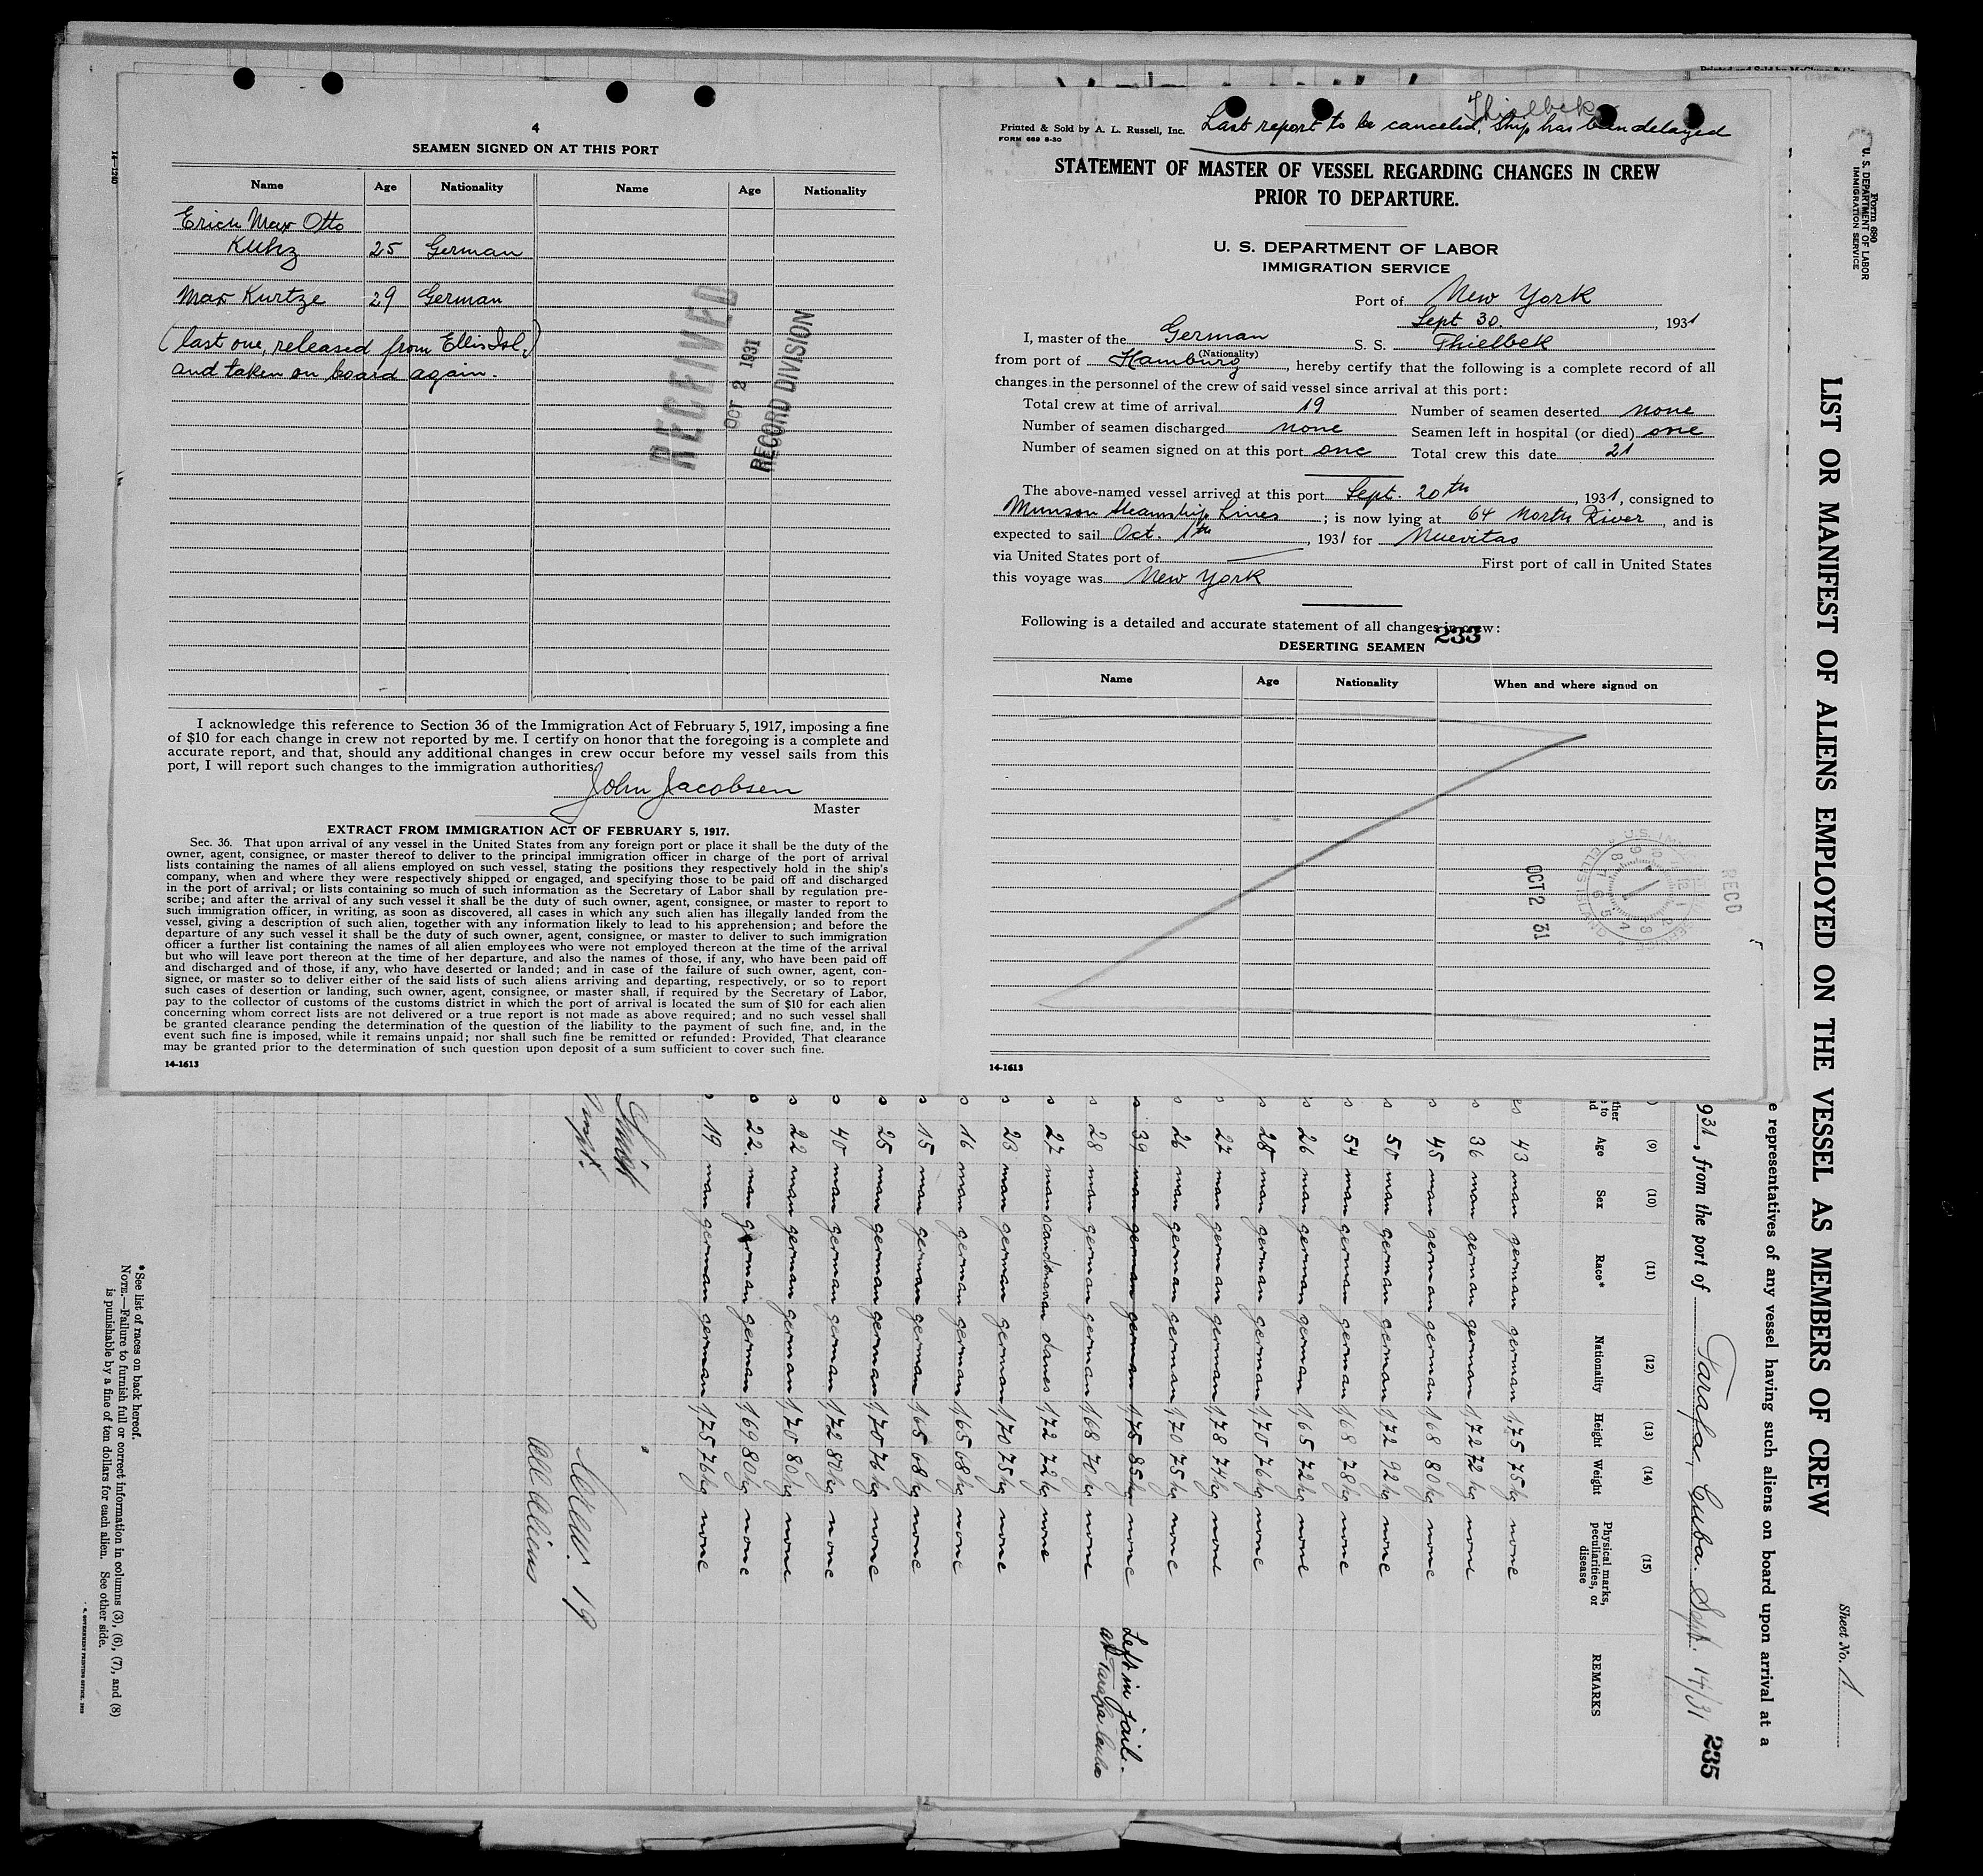 4
SEAMEN SIGNED ON AT THIS PORT
Name Age Nationality Name Age Nationality
Erich Max Otto
Kuhz 25 German
Max Kurtze 29 German
(last one, released from Ellis Isl.)
and taken on board again.
RECEIVED
OCT 2 1931
RECORD DIVISION
I acknowledge this reference to Section 36 of the Immigration Act of February 5, 1917, imposing a fine
of $10 for each change in crew not reported by me. I certify on honor that the foregoing is a complete and
accurate report, and that, should any additional changes in crew occur before my vessel sails from this
port, I will report such changes to the immigration authorities.
John Jacobsen
Master
EXTRACT FROM IMMIGRATION ACT OF FEBRUARY 5, 1917.
Sec. 36. That upon arrival of any vessel in the United States from any foreign port or place it shall be the duty of the
owner, agent, consignee, or master thereof to deliver to the principal immigration officer in charge of the port of arrival
lists containing the names of all aliens employed on such vessel, stating the positions they respectively hold in the ship's
company, when and where they were respectively shipped or engaged, and specifying those to be paid off and discharged
in the port of arrival; or lists containing so much of such information as the Secretary of Labor shall by regulation pre-
scribe; and after the arrival of any such vessel it shall be the duty of such owner, agent, consignee, or master to report to
such immigration officer, in writing, as soon as discovered, all cases in which any such alien has illegally landed from the
vessel, giving a description of such alien, together with any information likely to lead to his apprehension; and before the
departure of any such vessel it shall be the duty of such owner, agent, consignee, or master to deliver to such immigration
officer a further list containing the names of all alien employees who were not employed thereon at the time of the arrival
but who will leave port thereon at the time of her departure, and also the names of those, if any, who have been paid off
and discharged and of those, if any, who have deserted or landed; and in case of the failure of such owner, agent, con-
signee, or master so to deliver either of the said lists of such aliens arriving and departing, respectively, or so to report
such cases of desertion or landing, such owner, agent, consignee, or master shall, if required by the Secretary of Labor,
pay to the collector of customs of the customs district in which the port of arrival is located the sum of $10 for each alien
concerning whom correct lists are not delivered or a true report is not made as above required; and no such vessel shall
be granted clearance pending the determination of the question of the liability to the payment of such fine, and, in the
event such fine is imposed, while it remains unpaid; nor shall such fine be remitted or refunded: Provided, That clearance
may be granted prior to the determination of such question upon deposit of a sum sufficient to cover such fine.
14-1613
14-1240
Thielbek
Printed & Sold by A. L. Russell, Inc.
FORM 689 8-30
Last report to be canceled, ship has been delayed
STATEMENT OF MASTER OF VESSEL REGARDING CHANGES IN CREW
PRIOR TO DEPARTURE.
U. S. DEPARTMENT OF LABOR
IMMIGRATION SERVICE
Port of New York
Sept 30., 1931
I, master of the German S. S. Thielbek
(Nationality)
from port of Hamburg, hereby certify that the following is a complete record of all
changes in the personnel of the crew of said vessel since arrival at this port:
Total crew at time of arrival 19 Number of seamen deserted none
Number of seamen discharged none Seamen left in hospital (or died) one
Number of seamen signed on at this port one Total crew this date 21
The above-named vessel arrived at this port Sept. 20th, 1931, consigned to
Munson Steamship Lines; is now lying at 64 North River, and is
expected to sail Oct. 1th, 1931 for Nuevitas
via United States port of First port of call in United States
this voyage was New York
Following is a detailed and accurate statement of all changes in crew:
233
DESERTING SEAMEN
Name Age Nationality When and where signed on
OCT 2 31
RECD
14-1613
Form 680
U. S. DEPARTMENT OF LABOR
IMMIGRATION SERVICE
Sheet No. 1
LIST OR MANIFEST OF ALIENS EMPLOYED ON THE VESSEL AS MEMBERS OF CREW
representatives of any vessel having such aliens on board upon arrival at a
931, from the port of Tarafa, Cuba. Sept. 14/31
235
(9) (10) (11) (12) (13) (14) (15)
Age Sex Race* Nationality Height Weight Physical marks, peculiarities, or disease REMARKS
43 man german german 1,75 75kg none
36 man german german 1,72 72kg none
45 man german german 1,68 80kg none
50 man german german 1,72 92kg none
54 man german german 1,68 78kg none
26 man german german 1,65 72kg none
28 man german german 1,70 76kg none
27 man german german 1,78 74kg none
26 man german german 1,70 75kg none
39 man german german 1,75 85kg none Left in jail
at Tarafa Cuba
28 man german german 1,68 70kg none
27 man scandinavian danes 1,72 72kg none
23 man german german 1,70 75kg none
16 man german german 1,65 68kg none
15 man german german 1,65 68kg none
25 man german german 1,70 76kg none
40 man german german 1,72 80kg none
22 man german german 1,70 80kg none
22 man german german 1,69 80kg none
19 man german german 1,75 76kg none
Crew. 19
All Aliens
*See list of races on back hereof.
NOTE.—Failure to furnish full or correct information in columns (3), (6), (7), and (8)
is punishable by a fine of ten dollars for each alien. See other side.